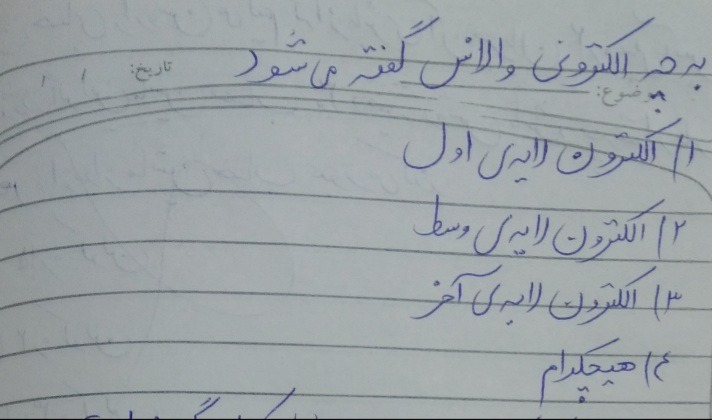 به چه الکترونی والانس گفته می‌شود
تاریخ: / /
موضوع:
۱/ الکترون لایه‌ی اول
۲/ الکترون لایه‌ی وسط
۳/ الکترون لایه‌ی آخر
۴/ هیچکدام